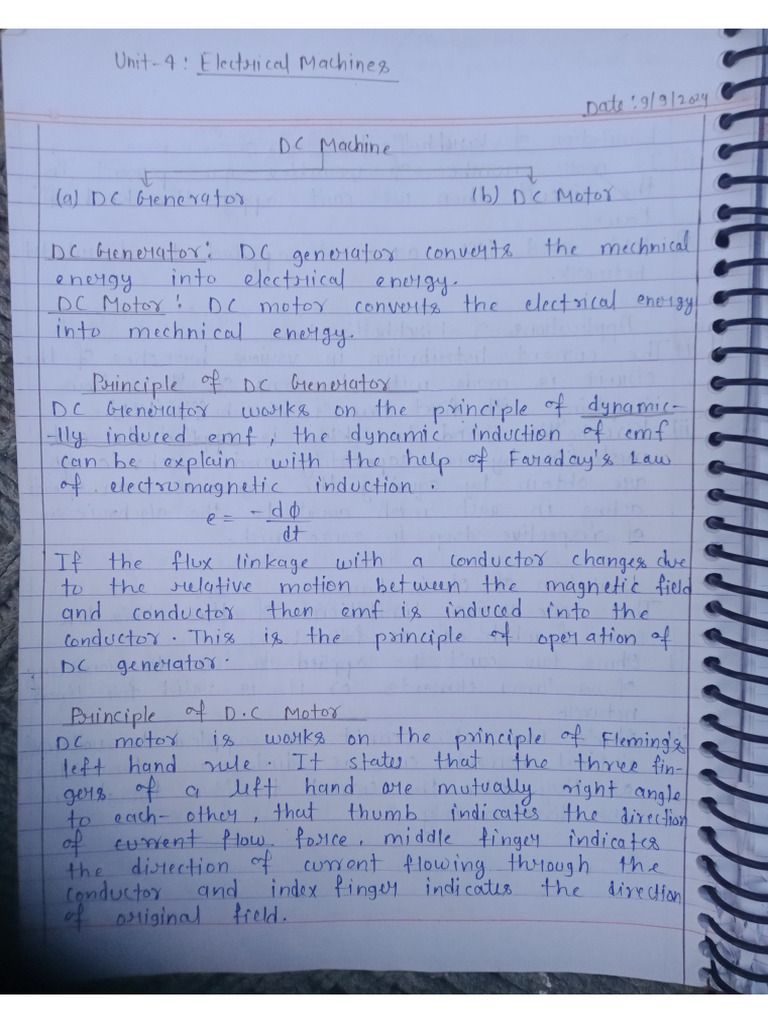 Unit-4: Electrical Machines
Date: 9/9/2024
DC Machine
(a) DC Generator (b) DC Motor
DC Generator: DC generator converts the mechnical
energy into electriical energy.
DC Motor: DC motor converts the electrical energy
into mechnical energy.
Principle of DC Generator
DC Generator works on the principle of dynamic-
-lly induced emf, the dynamic induction of emf
can be explain with the help of Faraday's Law
of electromagnetic induction.
e = -dϕ/dt
If the flux linkage with a conductor changes due
to the relative motion between the magnetic field
and conductor then emf is induced into the
conductor. This is the principle of operation of
DC generator.
Principle of D.C Motor
DC motor is works on the principle of Fleming's
left hand rule. It states that the three fin-
gers of a left hand are mutually right angle
to each-other, that thumb indicates the direction
of current flow force, middle finger indicates
the direction of current flowing through the
conductor and index finger indicates the direction
of original field.